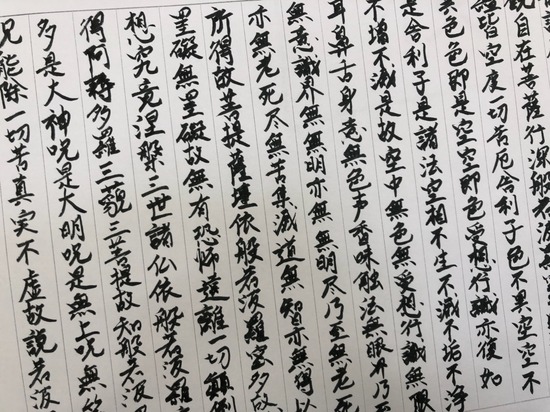 観自在菩薩行深般若波羅
蘊皆空度一切苦厄舎利子色不異空空不
異色色即是空空即色受想行識亦復如
是舎利子是諸法空相不生不滅不垢不浄
不増不減是故空中無色無受想行識無眼
耳鼻舌身意無色声香味触法無眼界乃至
無意識界無無明亦無無明尽乃至無老死
亦無老死尽無苦集滅道無智亦無得以
所得故菩提薩埵依般若波羅蜜多故
罣礙無罣礙故無有恐怖遠離一切顛倒
想究竟涅槃三世諸仏依般若波羅
得阿耨多羅三藐三菩提故知般若波
多是大神呪是大明呪是無上呪無
呪能除一切苦真実不虚故説若波